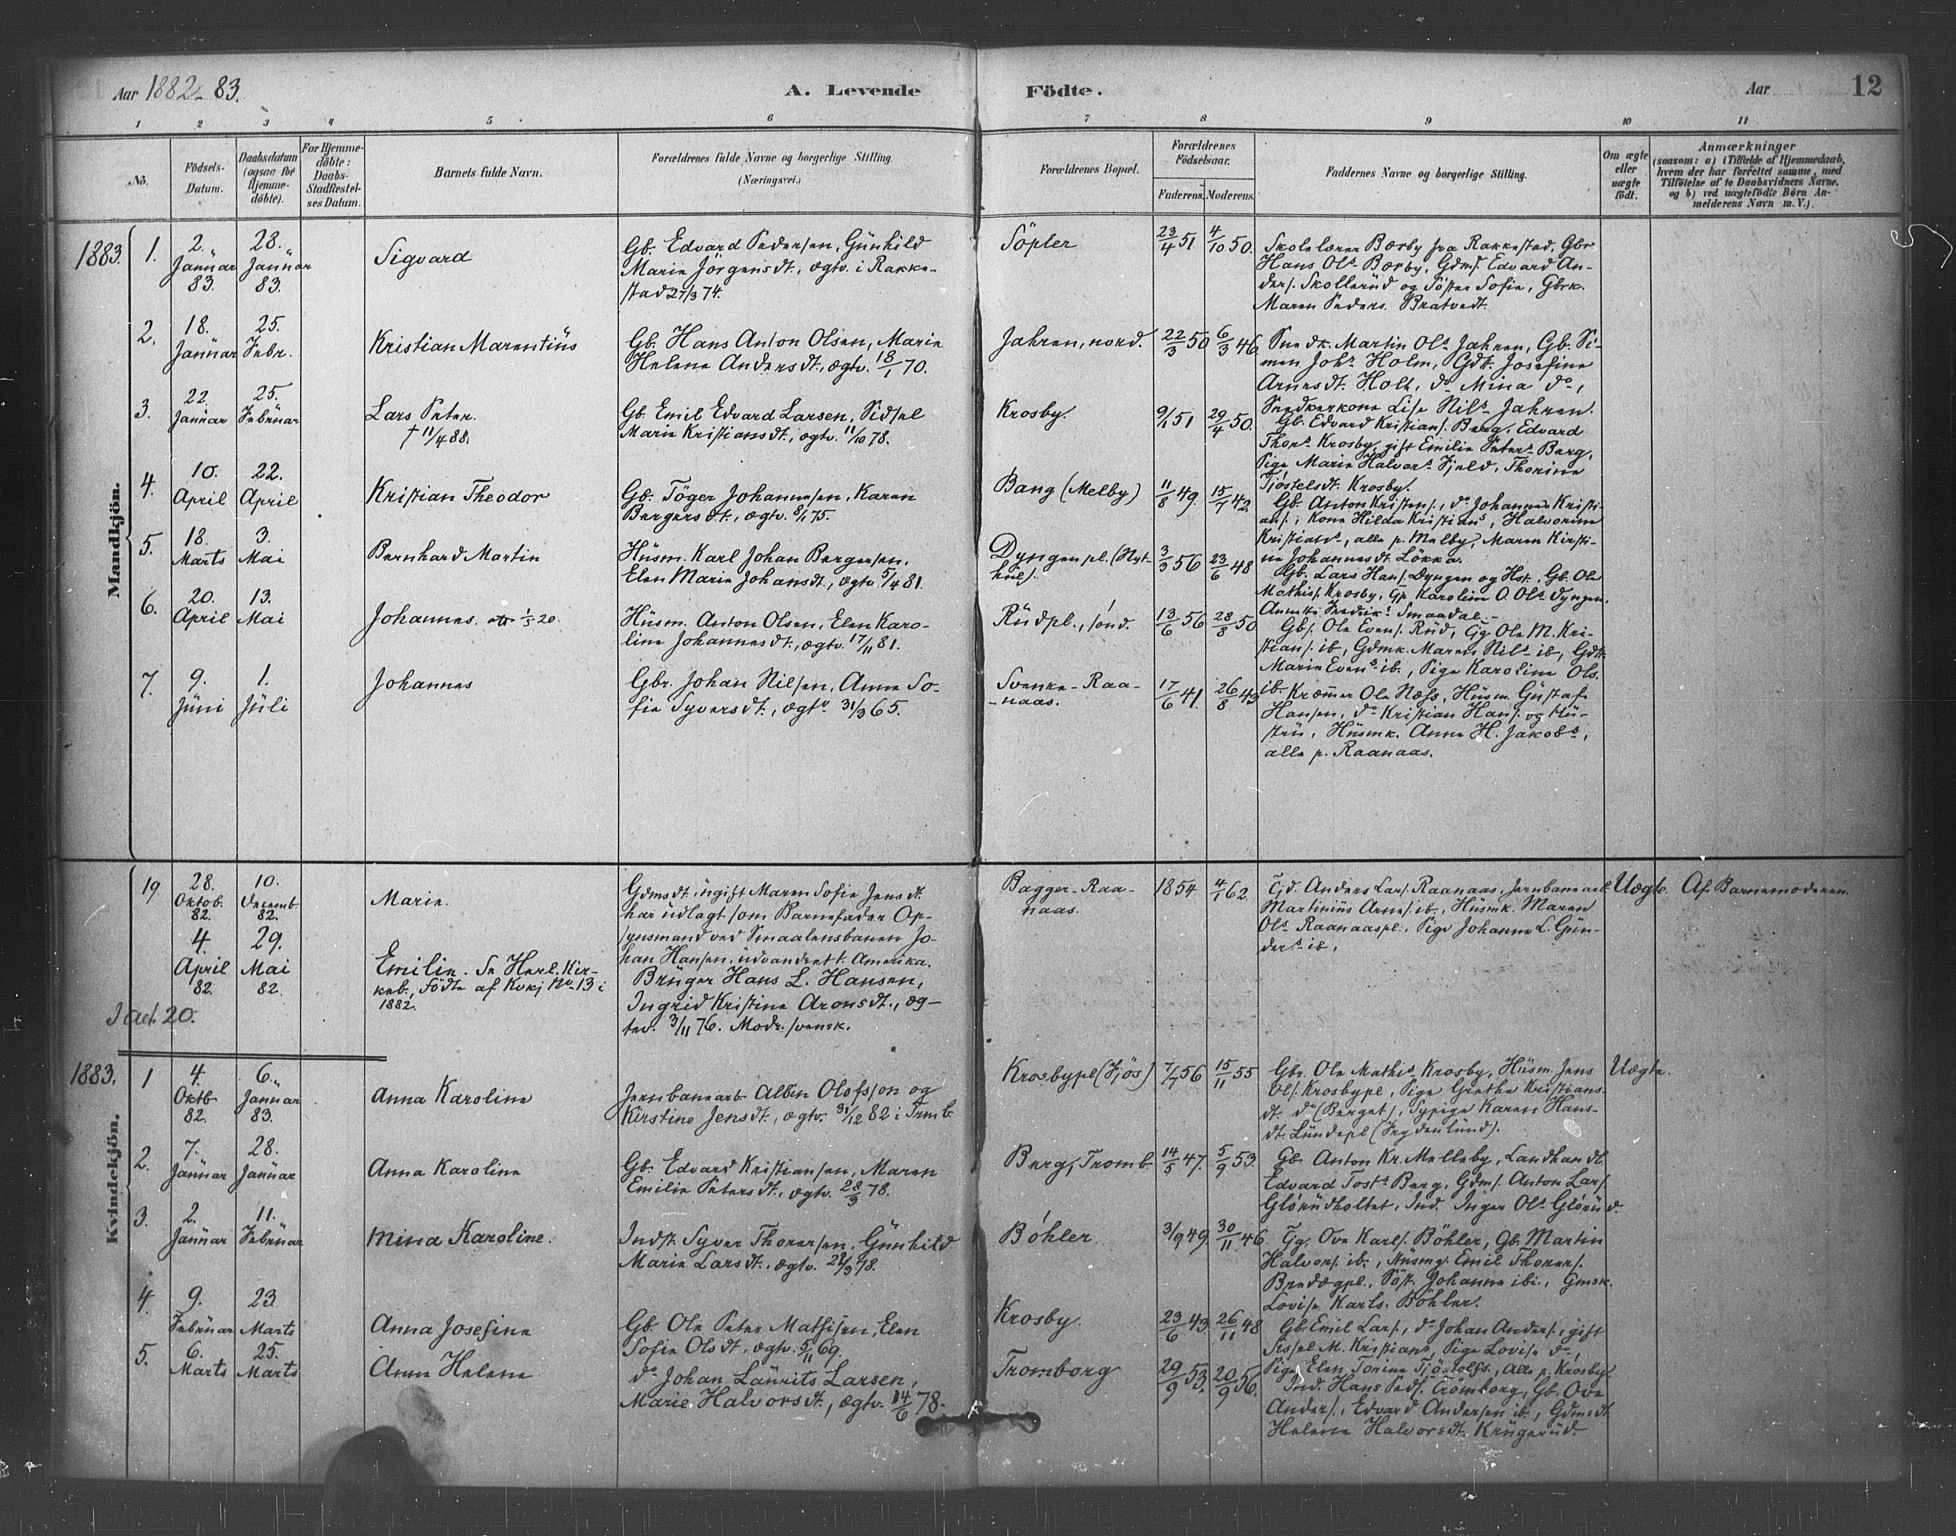 Aar 1882-83.
A. Levende Födte.
Aar
12
1 2 3 4 5 6 7 8 9 10 11
No.
Födsels-Datum.
Daabsdatum (ogsaa for Hjemme-döbte).
For Hjemme-döbte: Daabs-Stadfæstel-ses Datum.
Barnets fulde Navn.
Forældrenes fulde Navne og borgerlige Stilling. (Næringsvei.)
Forældrenes Bopæl.
Forældrenes Födselsaar.
Faderens. Moderens.
Faddernes Navne og borgerlige Stilling.
Om ægte eller uægte födt.
Anmærkninger
(saasom: a) i Tilfælde af Hjemmedaab,
hvem der har forrettet samme, med
Tilföielse af to Daabsvidners Navne,
og b) ved uægtefödte Börn An-
melderens Navn m. V.)
Mandkjön.
1883. 1. 2. Januar 83. 28. Januar 83.
Sigvard
Gb. Edvard Pedersen, Gunhild
Marie Jörgensdt., ægtv. i Rakke-
stad 27/3 74.
Söpler
23/4 51 4/10 50.
Skolelærer Bærby fra Rakkestad, Gbr
Hans Ols. Bærby, Gdms. Edvard An-
ders. Skollerud og Söster Sofie, Gbrk.
Maren Peders. Bratvedt.
2. 18. Januar 25. Febr.
Kristian Marentius
Gb. Hans Anton Olsen, Marie
Helene Andersdt., ægtv. 18/1 70.
Jahren, nord.
22/3 50 6/3 46
Snedk. Martin Ols. Jahren, Gb. Si-
men Johs. Holm, Gdt. Josefine
Arnesdt. Holt, do Mina do,
Snedkerkone Lise Nils. Jahren.
3. 22. Januar 25. Februar
Lars Peter.
† 11/4 88.
Gb. Emil Edvard Larsen, Sidsel
Marie Kristiansdt., ægtv. 11/10 78.
Krosby.
9/1 51 29/4 50.
Gb. Edvard Kristians. Berg, Edvard
Thors. Krosby, gift Emilie Peters. Berg,
Pige Marie Halvors. Fjeld, Thorine
Tjöstelsdt. Krosby.
4. 10. April 22. April
Kristian Theodor
Gb. Töger Johannesen, Karen
Bergersdt., ægtv. 8/1 75.
Bang (Melby)
11/8 49. 15/7 42
Gb. Anton Kristens., do Johannes Kristi-
ans., Kone Hilda Kristians., Halvorine
Kristians., alle p. Melby, Maren Kirsti-
ne Johannesdt. Lökka.
5. 18. Marts 3. Mai
Bernhard Martin
Husm. Karl Johan Bergersen,
Elen Marie Johansdt., ægtv. 5/4 81.
Dyngenpl. (Nyt-
hus).
3/3 56 23/6 48
Gb. Lars Hans. Dyngen og Hst., Gb. Ole
Mathis. Krosby, Gp. Karoline O. Ols. Dyngen,
Annette Fredriks. Smaadal.
6. 20. April 13. Mai
Johannes.
Husm. Anton Olsen, Elen Karo-
line Johannesdt., ægtv. 17/11 81.
Rudpl., sönd.
13/6 56 28/8 50
Gbs. Ole Evens. Rud, Gg. Ole M. Kri-
stians. ib, Gdmk. Maren Nils. ib, Gdt.
Marie Evens. ib., Pige Karoline Ols.
ib.
7. 9. Juni 1. Juli
Johannes
Gbr. Johan Nilsen, Anne So-
fie Syversdt., ægtv. 31/3 65.
Svenke-Raa-
naas.
17/6 41. 26/8 43
Kræmer Ole Næss, Husm. Gustaf
Hansen, do Kristian Hans. og Hu-
stru, Husmk. Anne H. Jakobs.,
alle p. Raanaas.
19. 28. Oktob. 82. 10. Decemb. 82.
Marie.
Gdmsdt., ugift Maren Sofie Jensdt.
har udlagt som Barnefader Op-
synsmand ved Smaalensbanen Jo-
han Hansen, udvandret t. Amerika.
Bagger-Raa-
naas.
1854 4/1 62.
Gjd. Anders Lars. Raanaas, Jernbanearb.
Martinius Arnes. ib., Husmk. Maren
Ols. Raanaaspl., Pige Johanne L. Gun-
ders. ib.
Uægte. Af Barnemoderen.
4. April 82. 29. Mai 82.
Emilie. Se Herl. Kir-
keb., Födte af Kvkj No. 13 i
1882.
Bruger Hans L. Hansen,
Ingrid Kristine Aronsdt., æg-
tev. 3/11 76. Modr. svensk.
I alt 20.
Kvindekjön.
1883. 1 4. Oktb 82 6. Januar 83.
Anna Karoline
Jernbanearb Albin Olofsson og
Kirstine Jensdt., ægtv. 31/12 82 i Tromb.
Krosbypl (Fjös)
7/7 56 15/11 55
Gbr. Ole Mathis. Krosby, Husm. Jens
Ols. Krosbypl, Pige Grethe Kristians-
dt. do (Berget), Sypige Karen Hans-
dt. Lundepl (Frydenlund).
Uægte.
2. 7. Januar 28. Januar
Anna Karoline
Gb. Edvard Kristiansen, Maren
Emilie Petersdt., ægtv. 28/3 78.
Berg, Tromb.
14/5 47. 5/9 53.
Gb. Anton Kr. Melleby, Landhandl.
Edvard Tosts. Berg, Gdms. Anton Lars.
Glörudholtet, Ind. Inger Ols. Glörud.
3. 2. Januar 11. Februar
Mina Karoline.
Indst. Syver Thoresen, Gunhild
Marie Larsdt., ægtv. 24/3 78.
Böhler
3/9 49. 30/11 46.
Gg. Ove Karls. Böhler, Gb. Martin
Halvors. ib., Husmg. Emil Thores.
Bredægpl., Söst. Johanne ib., Gmsk.
Lovise Karls. Böhler.
4. 9. Februar 23 Marts
Anna Josefine
Gb. Ole Peter Mathisen, Elen
Sofie Olsdt., ægtv. 5/11 69.
Krosby.
23/6 43. 26/11 48
Gb. Emil Lars., do Johan Anders., gift
Sissel M. Kristians., Pige Lovise do,
Pige Elen Torine Tjöstolfs., alle p. Krosby.
5. 6. Marts 25. Marts
Anna Helene
do Johan Laurits Larsen,
Marie Halvorsdt., ægtv. 14/6 78.
Tromborg
29/9 53. 20/9 56.
Ind. Hans Peds. Trömborg, Gb. Ove
Anders., Edvard Andersen ib., Gdmsdt.
Helene Halvorsdt. Krugerud.